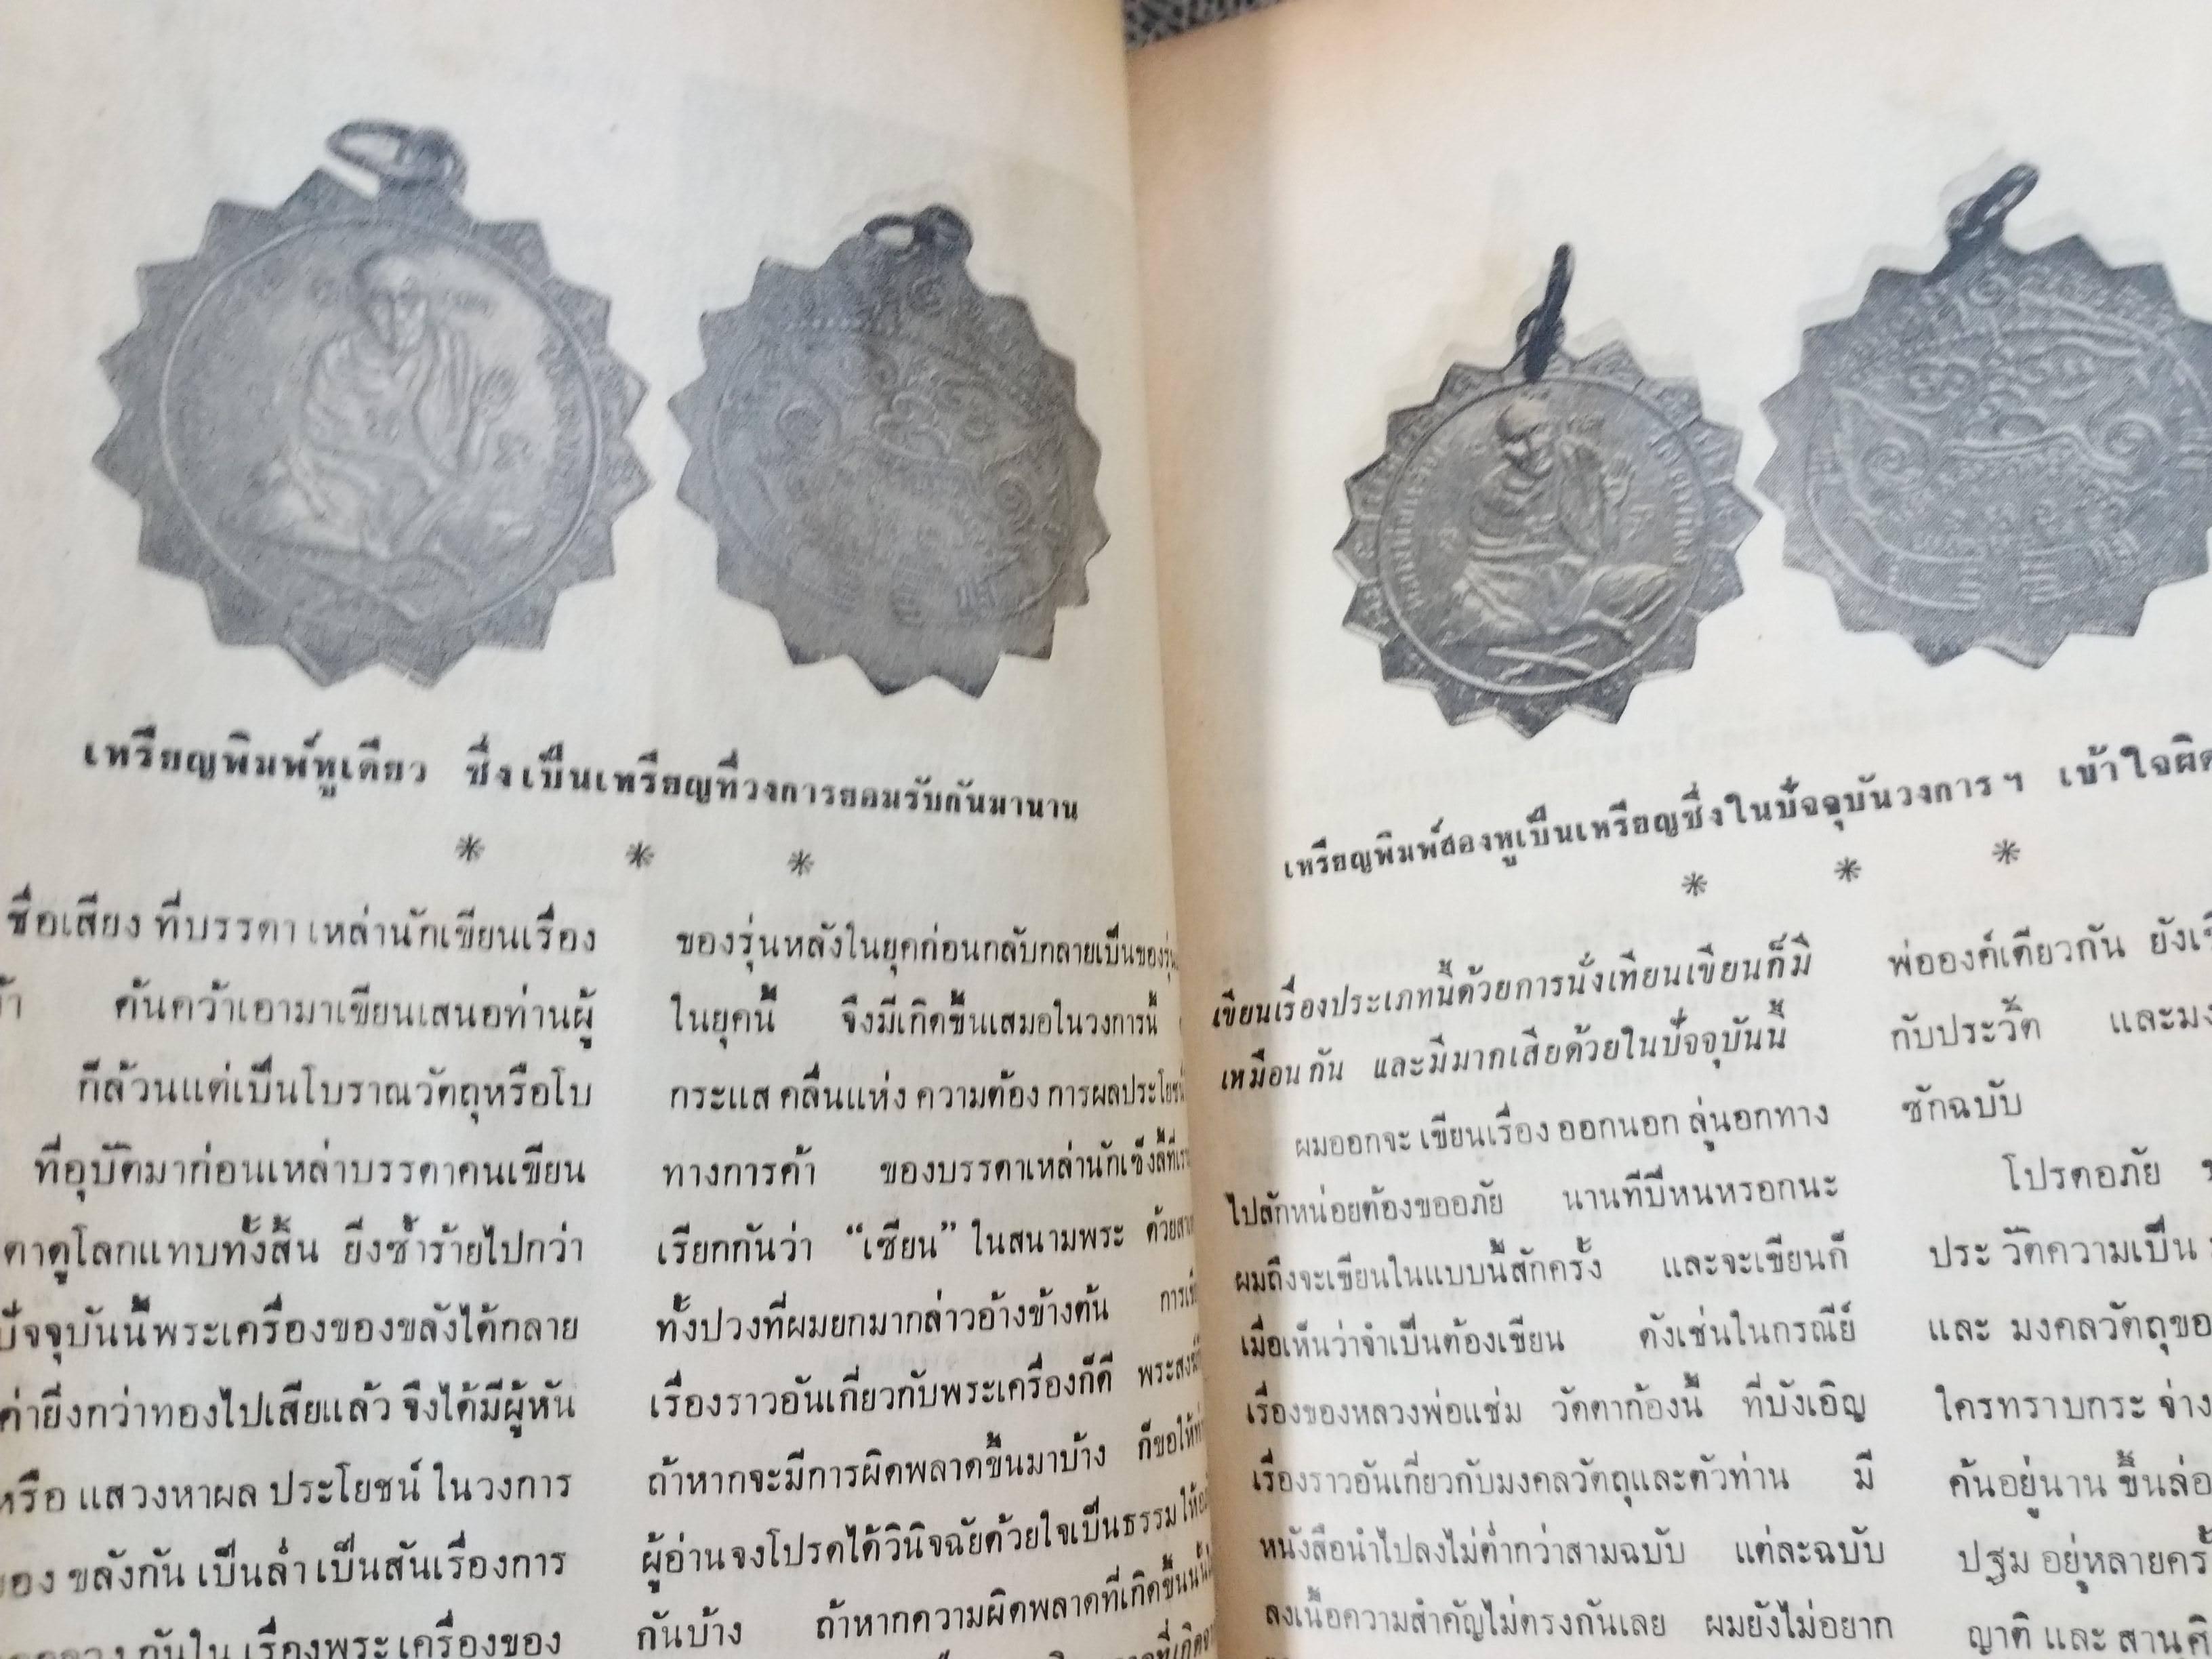 เหรียญพิมพ์หูเดียว ซึ่งเป็นเหรียญที่วงการยอมรับกันมานาน
* * *
ชื่อเสียง ที่บรรดา เหล่านักเขียนเรื่อง
ค้นคว้าเอามาเขียนเสนอท่านผู้
ก็ล้วนแต่เป็นโบราณวัตถุหรือโบ
ที่อุบัติมาก่อนเหล่าบรรดาคนเขียน
ดาดูโลกแทบทั้งสิ้น ยิ่งซ้ำร้ายไปกว่า
ปัจจุบันนี้พระเครื่องของขลังได้กลาย
ค่ายิ่งกว่าทองไปเสียแล้ว จึงได้มีผู้หัน
หรือ แสวงหาผล ประโยชน์ ในวงการ
ของ ขลังกัน เป็นล่ำ เป็นสันเรื่องการ
กันใน เรื่องพระ เครื่องของ
ของรุ่นหลังในยุคก่อนกลับกลายเป็นของรุ่น
ในยุคนี้ จึงมีเกิดขึ้นเสมอในวงการนี้
กระแส คลื่นแห่ง ความต้อง การผลประโยชน์
ทางการค้า ของบรรดาเหล่านักเซ็งลี้ที่เรา
เรียกกันว่า “เซียน” ในสนามพระ ด้วยสาเ
ทั้งปวงที่ผมยกมากล่าวอ้างข้างต้น การเขี
เรื่องราวอันเกี่ยวกับพระเครื่องก็ดี พระสงฆ์
ถ้าหากจะมีการผิดพลาดขึ้นมาบ้าง ก็ขอให้ท่
ผู้อ่านจงโปรดได้วินิจฉัยด้วยใจเป็นธรรม ให้
กันบ้าง ถ้าหากความผิดพลาดที่เกิดขึ้นนั้น
เหรียญพิมพ์สองหูเป็นเหรียญซึ่งในปัจจุบันวงการ ฯ เข้าใจผิด
* * *
เขียนเรื่องประเภทนี้ด้วยการนั่งเทียนเขียนก็มี
เหมือน กัน และมีมากเสียด้วยในปัจจุบันนี้
ผมออกจะ เขียนเรื่อง ออกนอก ลู่นอกทาง
ไปสักหน่อยต้องขออภัย นานทีปีหนหรอกนะ
ผมถึงจะเขียนในแบบนี้สักครั้ง และจะเขียนก็
เมื่อเห็นว่าจำเป็นต้องเขียน ดังเช่นในกรณีย์
เรื่องของหลวงพ่อแช่ม วัดตาก้องนี้ ที่บังเอิญ
เรื่องราวอันเกี่ยวกับมงคลวัตถุและตัวท่าน มี
หนังสือนำไปลงไม่ต่ำกว่าสามฉบับ แต่ละฉบับ
ลงเนื้อความสำคัญไม่ตรงกันเลย ผมยังไม่อยาก
พ่อองค์เดียวกัน ยังเขี
กับประวัติ และมง
ซักฉบับ
โปรดอภัย
ประ วัติความเป็น
และ มงคลวัตถุขอ
ใครทราบกระ จ่าง
ค้นอยู่นาน ขึ้นล่อ
ปฐม อยู่หลายครั้
ญาติ และ สานุศิ